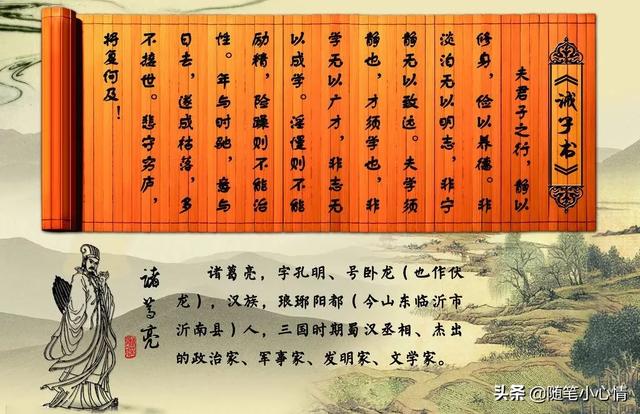 《诫子书》
夫君子之行，静以
修身，俭以养德。非
淡泊无以明志，非宁
静无以致远。夫学须
静也，才须学也，非
学无以广才，非志无
以成学。淫慢则不能
励精，险躁则不能治
性。年与时驰，意与
日去，遂成枯落，多
不接世。悲守穷庐，
将复何及！
诸葛亮
诸葛亮，字孔明、号卧龙（也作伏
龙），汉族，琅琊阳都（今山东临沂市
沂南县）人，三国时期蜀汉丞相、杰出
的政治家、军事家、发明家、文学家。
头条 @随笔小心情